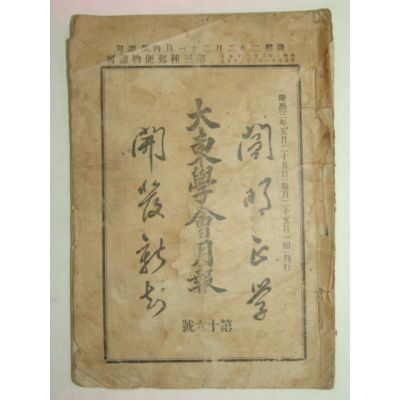 隆熙二年二月二十一日內部認可
第三種郵便物認可
隆熙三年五月二十五日(每月二十五日一回)刊行
闡明正学
大東學會月報
開發新知
第十六號